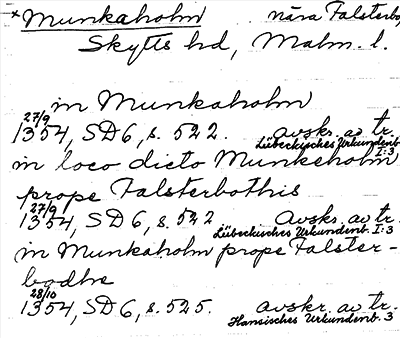 *Munkaholm nära Falsterbo,
Skytts hd, Malm. l.
in Munkaholm
27/9
1354, SD 6, s. 522. avskr. av tr.
Lübeckisches Urkundenb.
I:3
in loco dicto Munkeholm
prope Falsterbothis
27/9
1354, SD 6, s. 522 Avskr. av tr.
Lübeckisches Urkundenb. I:3
in Munkaholm prope Falster-
bodhe
28/10
1354, SD 6, s. 525. avskr. av tr.
Hansisches Urkundenb. 3